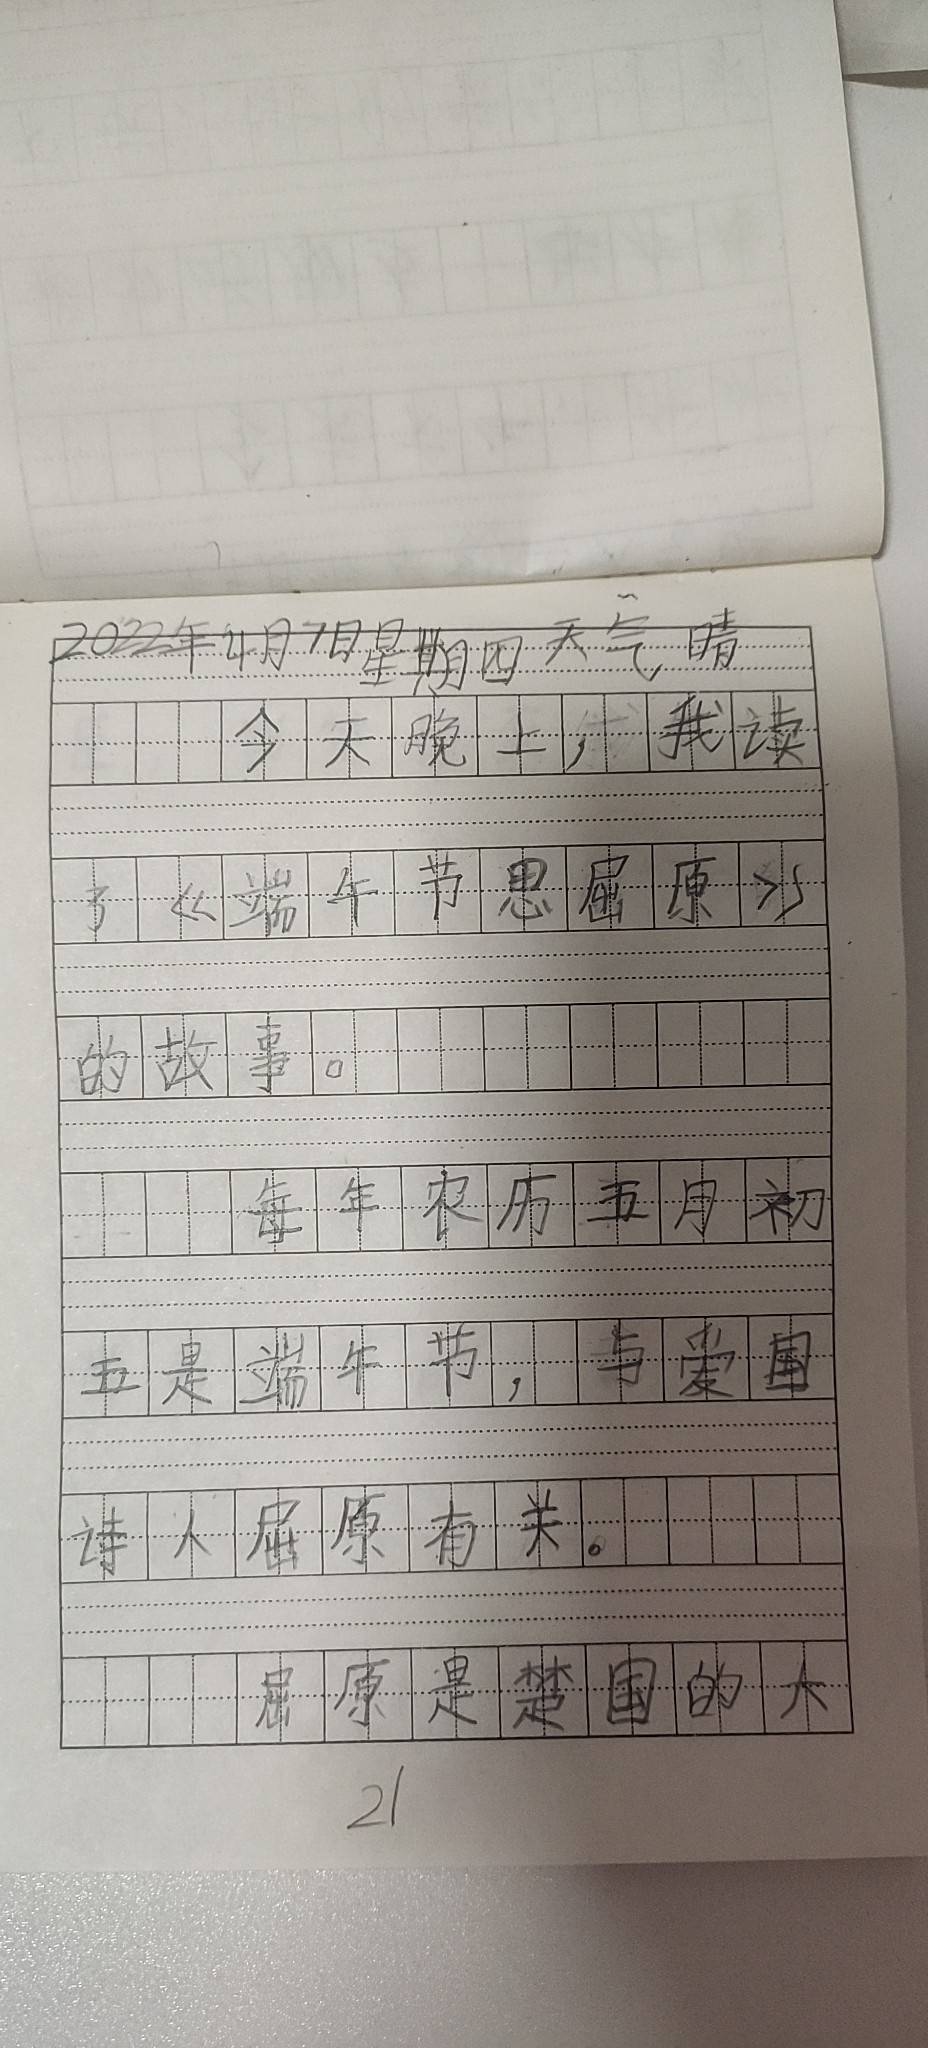 2022年4月7日星期四天气晴
今天晚上,我读
了《端午节思屈原》
的故事。
每年农历五月初
五是端午节,与爱国
诗人屈原有关。
屈原是楚国的大
21